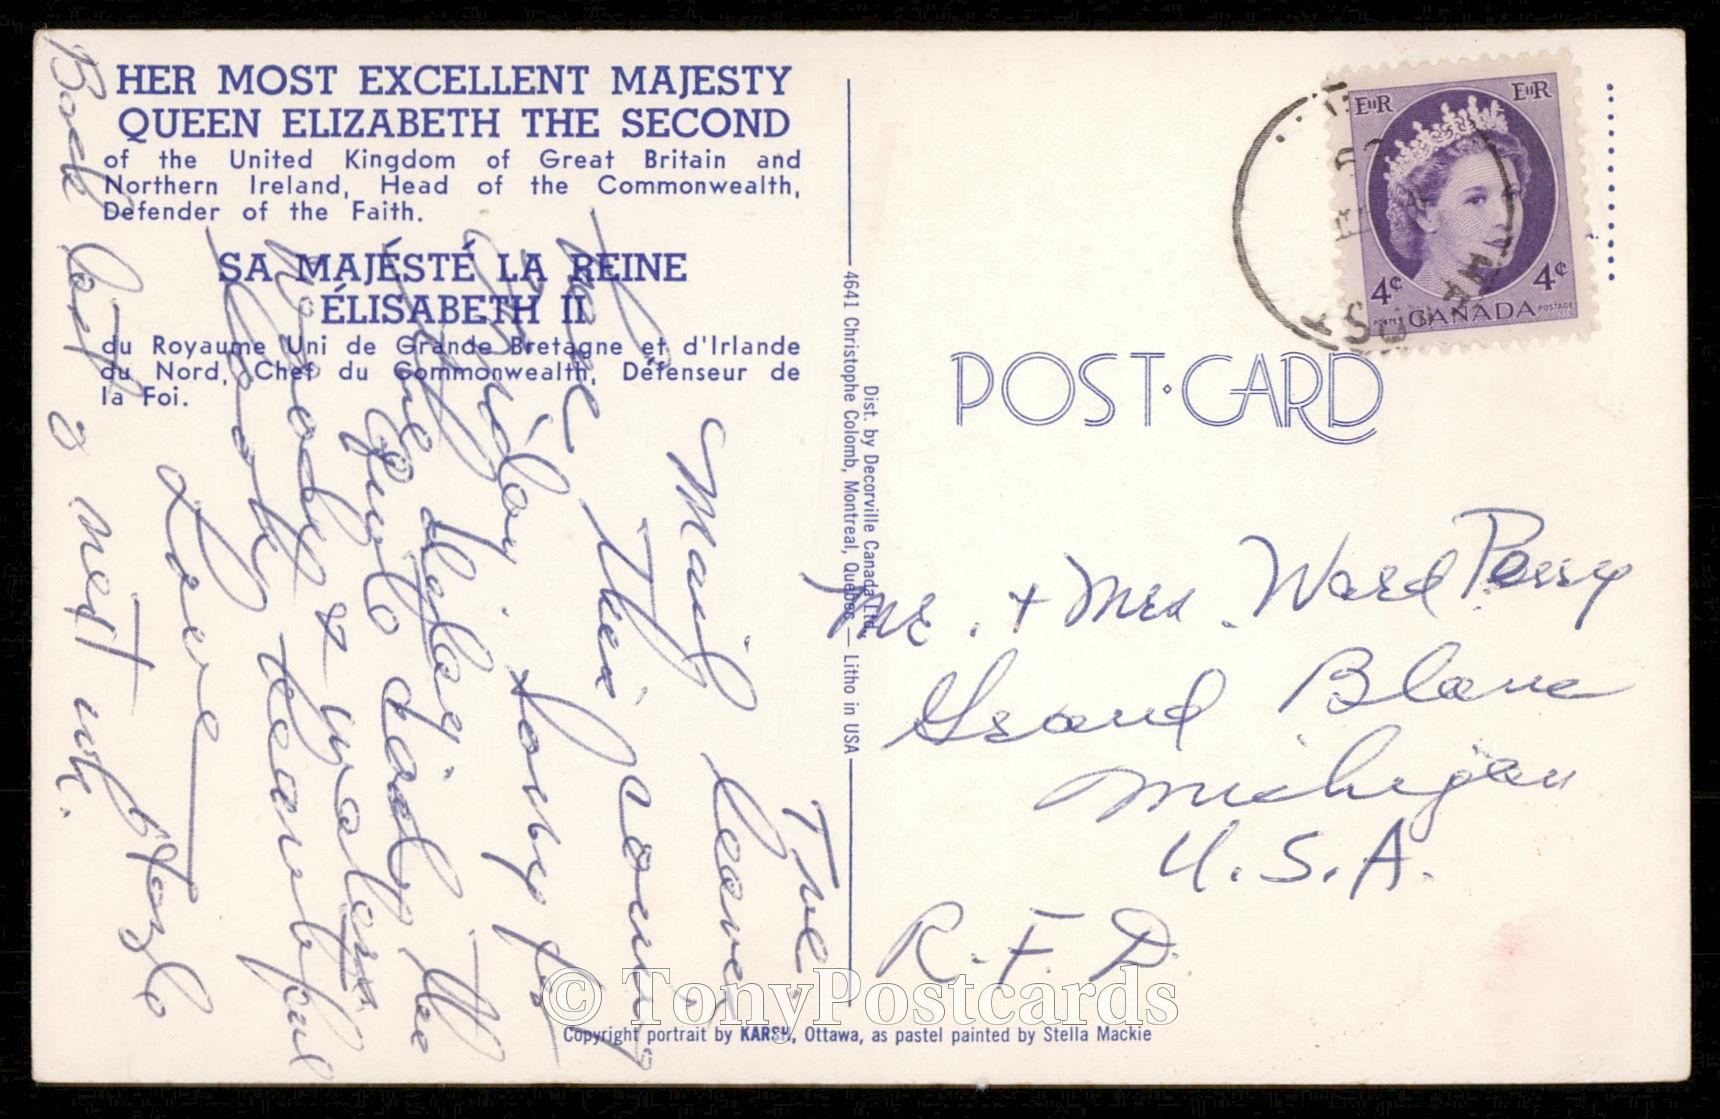 HER MOST EXCELLENT MAJESTY
QUEEN ELIZABETH THE SECOND
of the United Kingdom of Great Britain and
Northern Ireland, Head of the Commonwealth,
Defender of the Faith.
SA MAJESTÉ LA REINE
ÉLISABETH II
du Royaume Uni de Grande Bretagne et d'Irlande
du Nord, Chef du Commonwealth, Défenseur de
la Foi.
Tue.
Mail leaves
here this
Friday
the
the
woods & waters
look beautiful
Love
Hazle
Back
next wk.
Dist. by Decorville Canada Ltd.
4641 Christophe Colomb, Montreal, Quebec — Litho in USA
EIIR EIIR
4¢ 4¢
POSTES CANADA POSTAGE
POST·CARD
Mr. + Mrs. Ward Perry
Grand Blanc
Michigan
U.S.A.
R.F.D.
© TonyPostcards
Copyright portrait by KARSH, Ottawa, as pastel painted by Stella Mackie